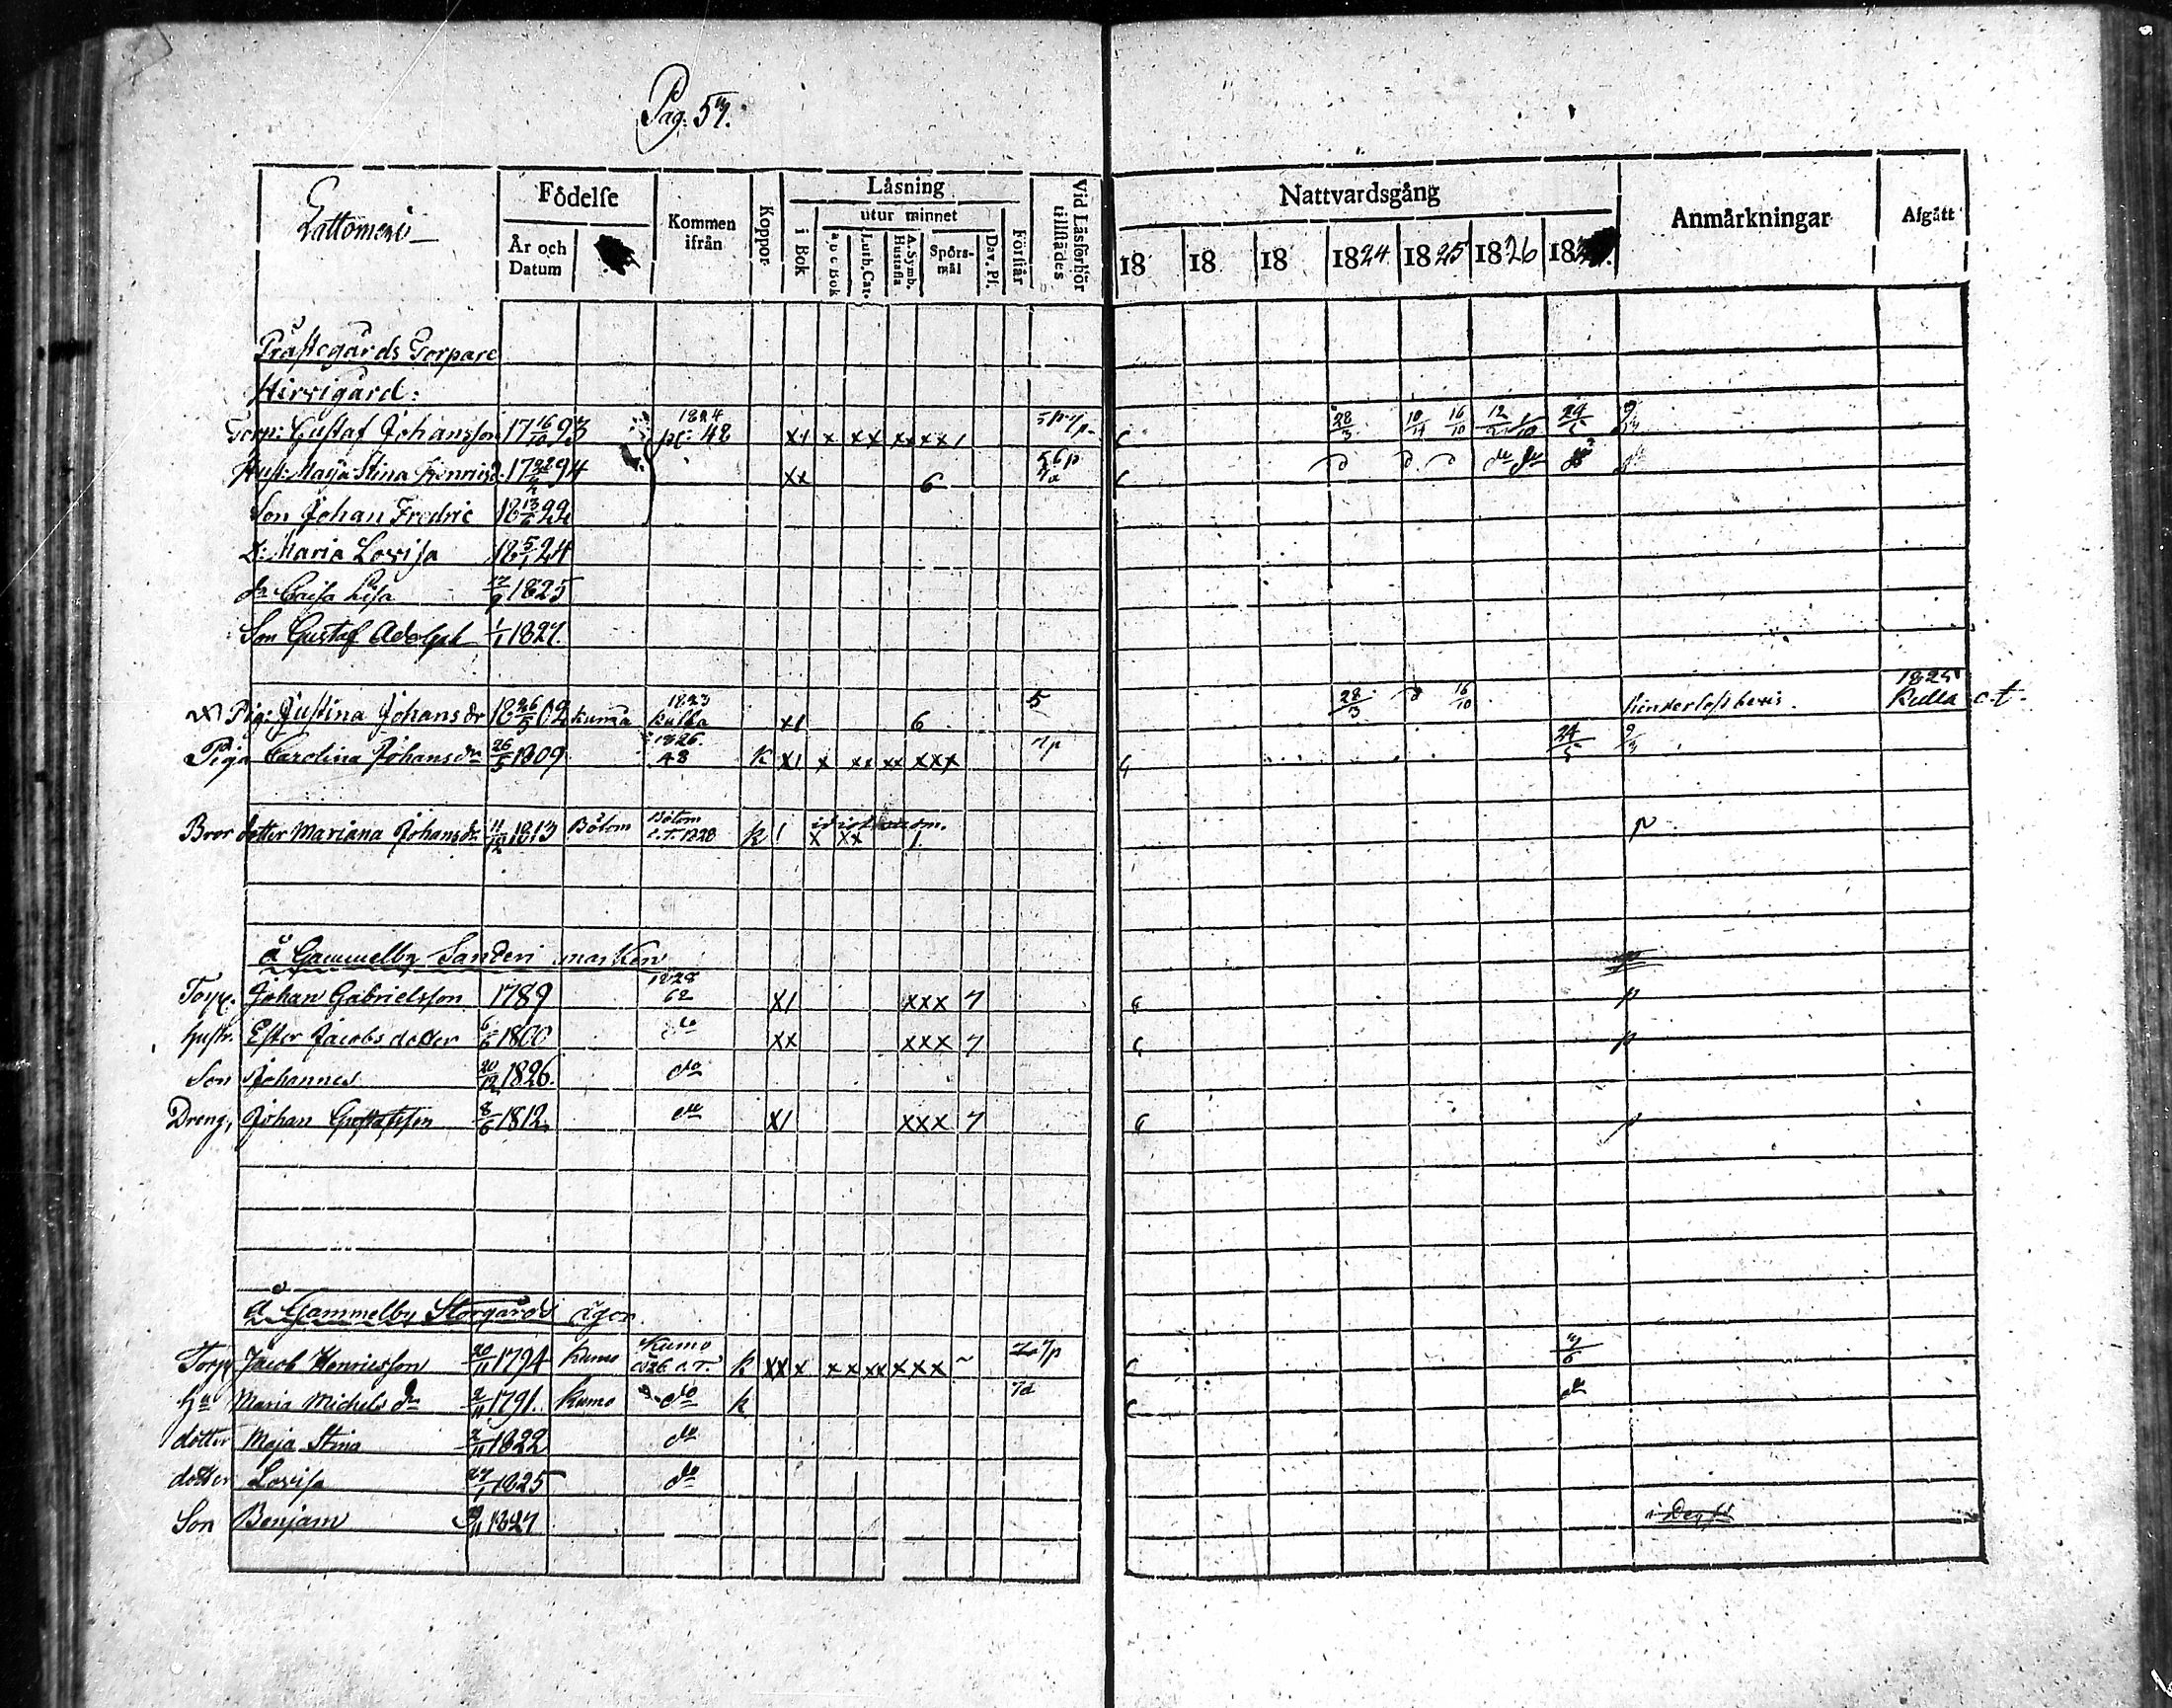 Pag. 57.
Lattomeri
Födelse
År och Datum
Kommen ifrån
Koppor
Låsning
i Bok
utur minnet
a b c Bok
Luth. Cat.
A. Symb. Hustafla
Spörsmål
Dav. Ps.
Förstår
Vid Läsförhör tillstädes
Nattvardsgång
18 18 18 1824 1825 1826 18
Anmärkningar
Afgått
Prästegårds Torpare
Hirvigård:
Torp: Gustaf Johansson 17 16/10 93 1824 48 x1 x xx xx xx 1 28/3 16/10 24/5
Hust: Maija Stina Henricsd. 17 94 xx 6
Son Johan Fredric 18 13/6 22
D: Maria Lovisa 18 5/1 24
Caisa Lisa 17/9 1825
Son Gustaf Adolph 1/1 1827.
Pig: Justina Johans dr 18 26/5 02 Kumå 1823 Kulla x1 6 5 28/3 16/10 1825 Kulla c.t.
Piga Carolina Johans dr 26/5 1809 1826. 48 k x1 x xx xx xxx 7p 24/5 9/3
Bror dotter Mariana Johans dr 11/12 1813 Bötom Bötom c.T. 1828 k 1 x xx 1. p
å Gammelby Sanderi marken
Torp. Johan Gabrielsson 1789 1828 62 x1 xxx 7 p
Hustr. Ester Jacobs dotter 6/6 1800 do xx xxx 7 p
Son Johannes 20/12 1826. do
Dreng, Johan Gustafsson 8/6 1812 do x1 xxx 7 p
å Gammelby Storgårds ägor
Torp Jacob Henricsson 20/11 1794 Kumo Kumo 1826 c.T. k xx x xx xx xxx 7p 7/6
Hu Maria Michels dr 2/11 1791. Kumo do k 7d do
dotter Maja Stina 2/11 1822 do
dotter Lovisa 27/1 1825 do
Son Benjam 1827